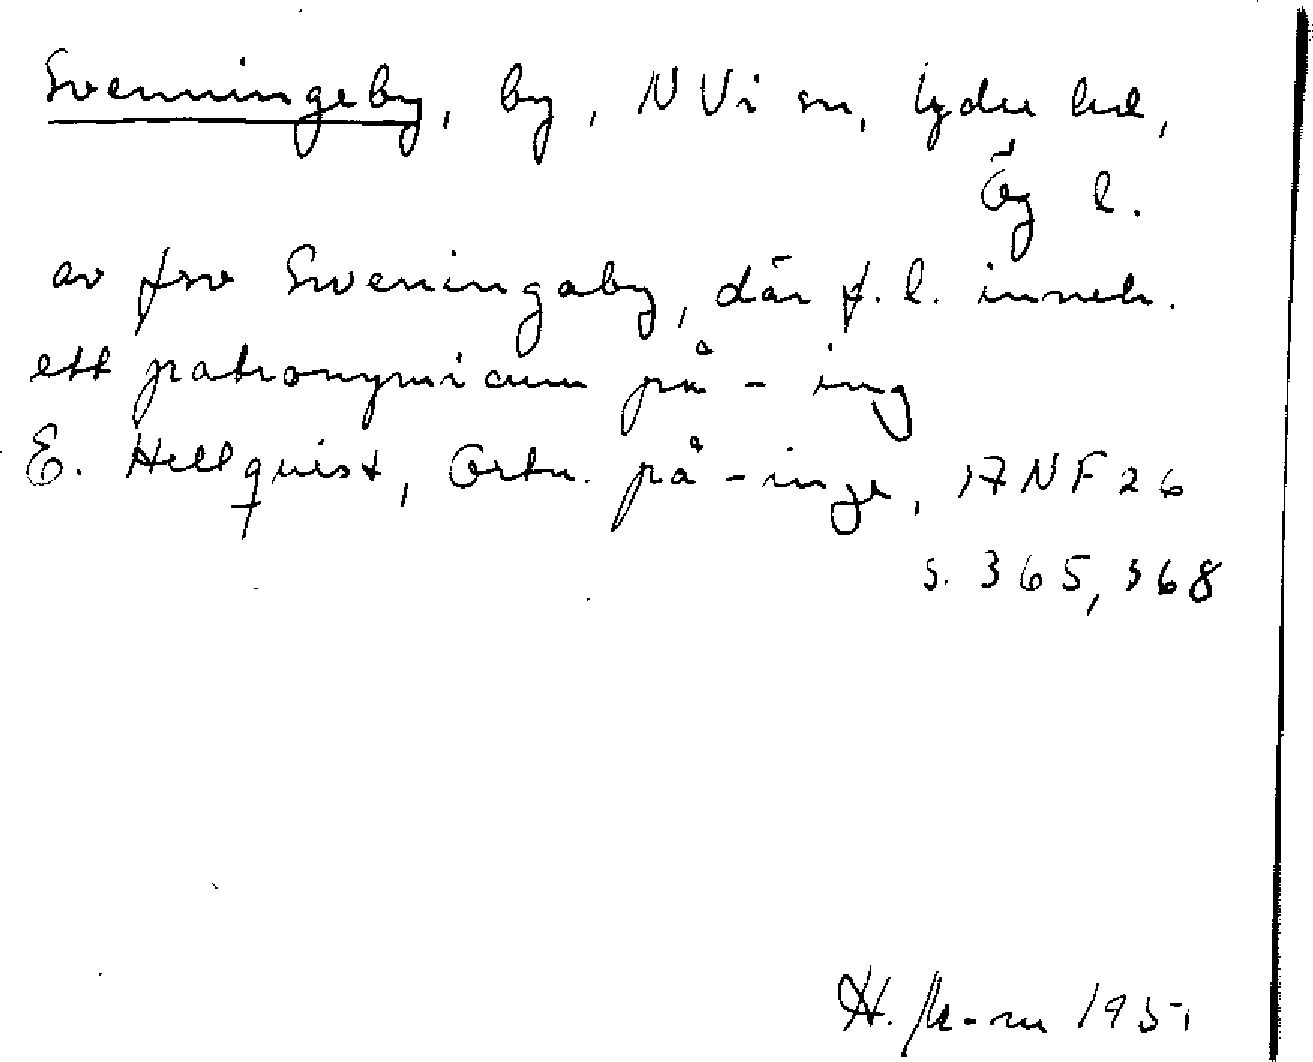 Svenningeby, by, N Vi sn, Ydre hd,
Ög l.
av fsv Sweningaby, där f. l. inneh.
ett patronymicum på - ing
E. Hellquist, Ortn. på -inge, i ANF 26
s. 365, 368
H. 1951